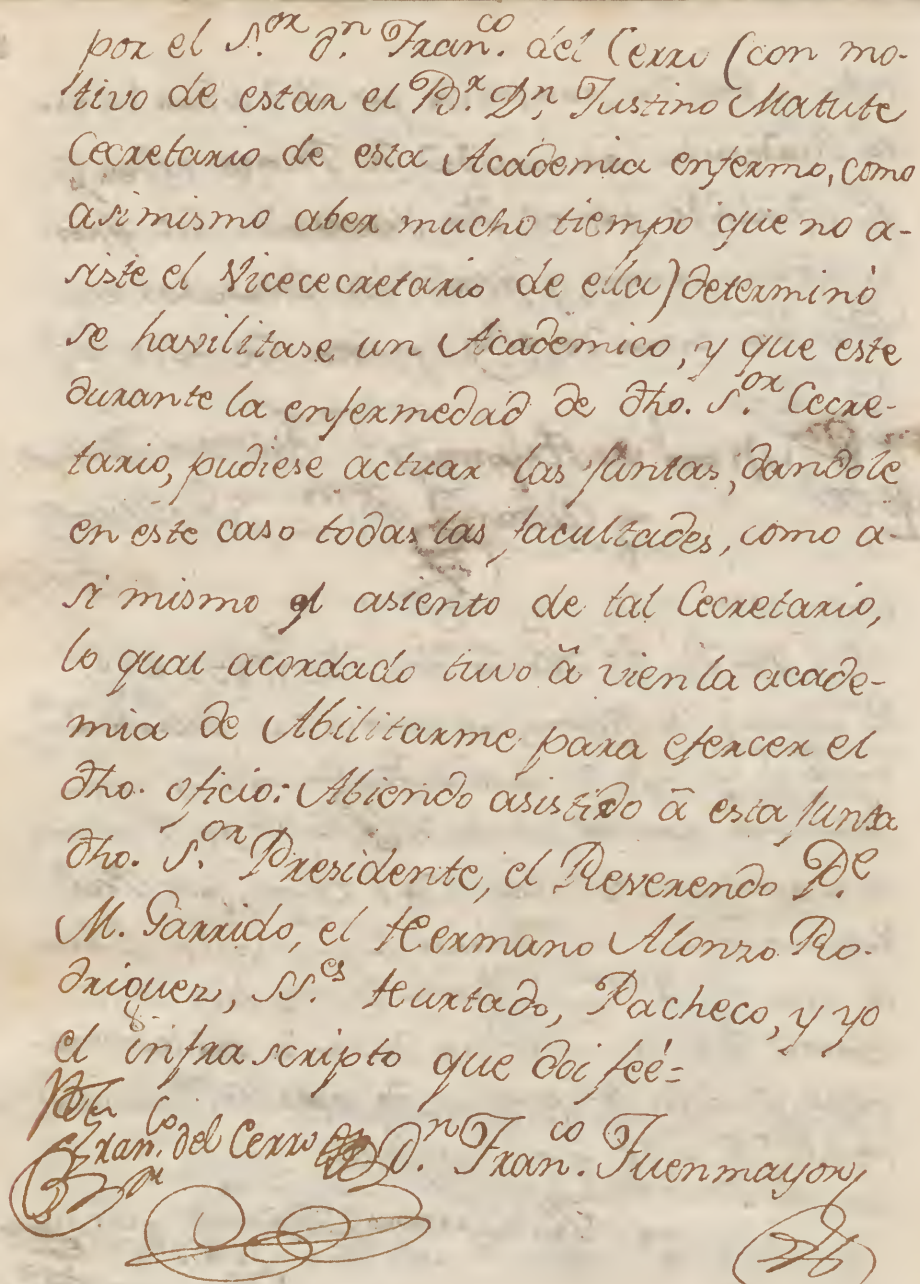 por el S.or d.n Fran.co del Cerro (con mo-
tivo de estar el D.r D.n Justino Matute
Cecretario de esta Academia enfermo, como
asimismo aber mucho tiempo que no a-
siste el Vicececretario de ella) determinó
se havilitase un Academico, y que este
durante la enfermedad de dho. S.or Cecre-
tario, pudiese actuar las Juntas, dandole
en este caso todas las facultades, como a-
si mismo el asiento de tal Cecretario,
lo qual acordado tuvo â vien la acade-
mia de Abilitarme para ejercer el
dho. oficio: Abiendo asistido â esta Junta
dho. S.or Presidente, el Reverendo P.e
M. Garrido, el Hermano Alonzo Ro-
driguez, SS.es Hurtado, Pacheco, y yo
el infrascripto que doi feé=
Fran.co del Cerro D.n Fran.co Fuenmayor